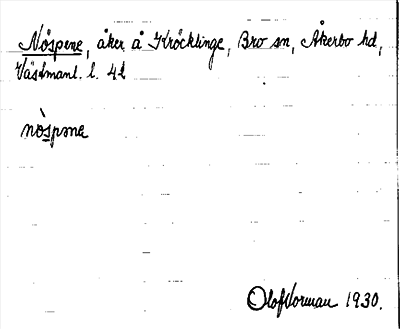 Nöspene, åker å Kröcklinge, Bro sn, Åkerbo hd,
Västmanl. l. 4 b
nòspəne
Olof Norman 1930.